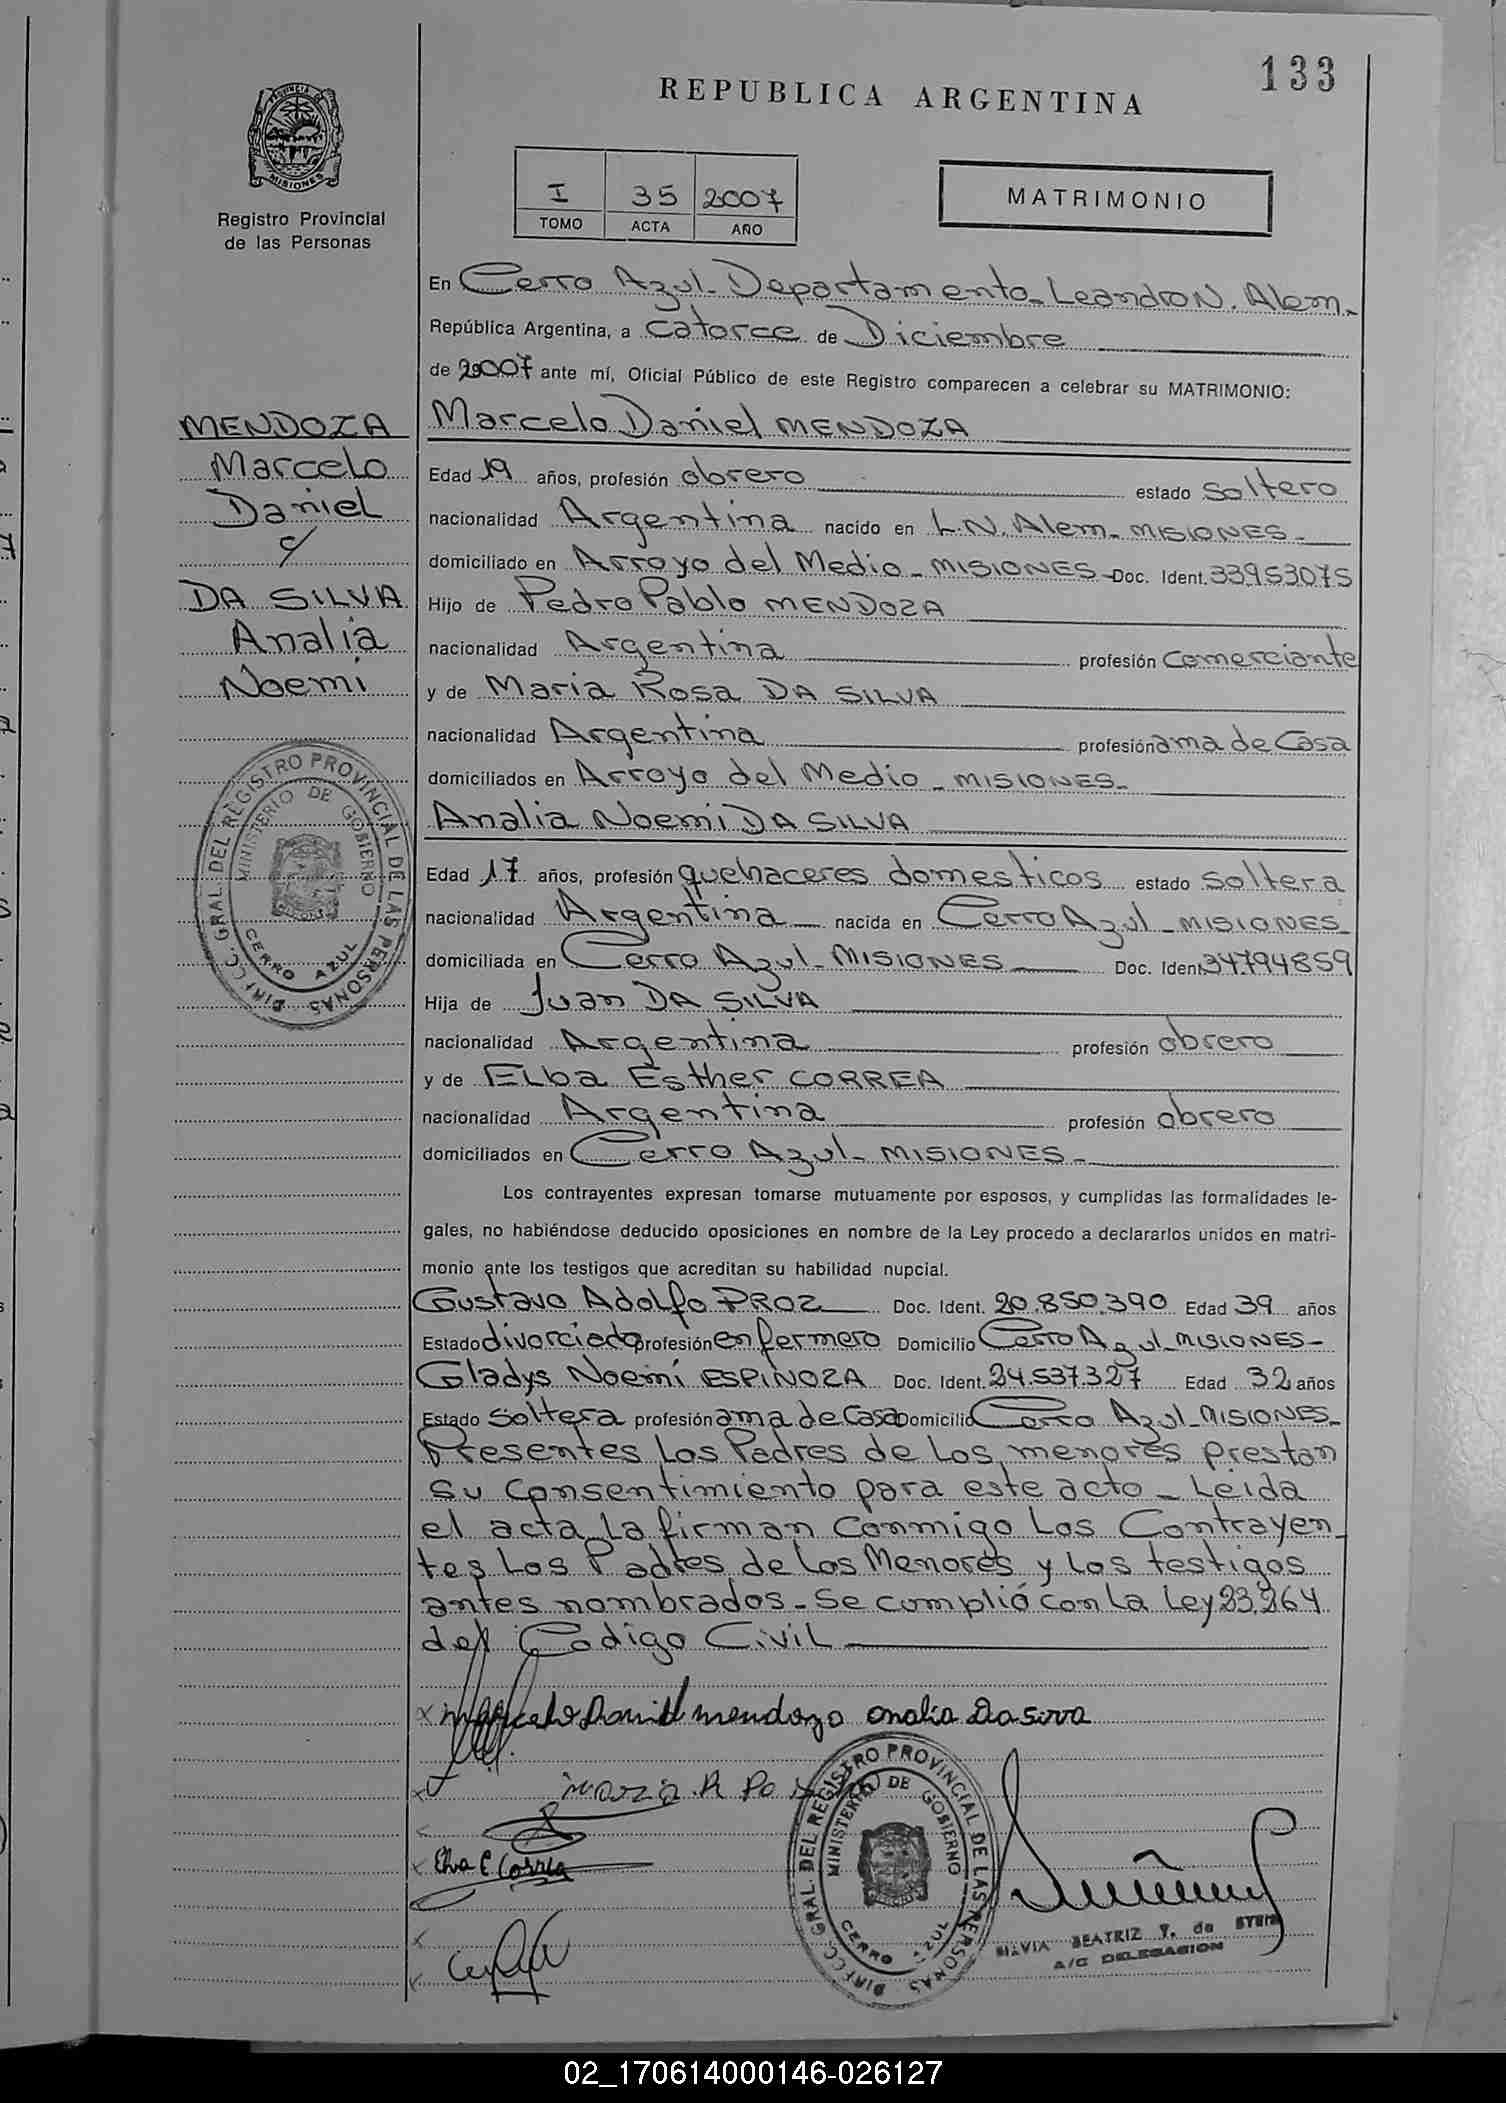 133
REPUBLICA ARGENTINA
PROVINCIA DE MISIONES
Registro Provincial
de las Personas
I 35 2007
TOMO ACTA AÑO
MATRIMONIO
En Cerro Azul-Departamento-Leandro N. Alem-
República Argentina, a catorce de Diciembre
de 2007 ante mí, Oficial Público de este Registro comparecen a celebrar su MATRIMONIO:
MENDOZA
Marcelo
Daniel
c/
DA SILVA
Analia
Noemi
Marcelo Daniel MENDOZA
Edad 19 años, profesión obrero estado soltero
nacionalidad Argentina nacido en L.N. Alem-MISIONES-
domiciliado en Arroyo del Medio-MISIONES-Doc. Ident. 33953075
Hijo de Pedro Pablo MENDOZA
nacionalidad Argentina profesión comerciante
y de Maria Rosa DA SILVA
nacionalidad Argentina profesión ama de Casa
domiciliados en Arroyo del Medio-MISIONES-
Analia Noemi DA SILVA
Edad 17 años, profesión quehaceres domesticos estado soltera
nacionalidad Argentina nacida en Cerro Azul-MISIONES-
domiciliada en Cerro Azul-MISIONES Doc. Ident. 34794859
Hija de Juan DA SILVA
nacionalidad Argentina profesión obrero
y de Elba Esther CORREA
nacionalidad Argentina profesión obrero
domiciliados en Cerro Azul-MISIONES-
Los contrayentes expresan tomarse mutuamente por esposos, y cumplidas las formalidades le-
gales, no habiéndose deducido oposiciones en nombre de la Ley procedo a declararlos unidos en matri-
monio ante los testigos que acreditan su habilidad nupcial.
Gustavo Adolfo PROZ Doc. Ident. 20.850.390 Edad 39 años
Estado divorciado profesión enfermero Domicilio Cerro Azul-MISIONES-
Gladys Noemí ESPINOZA Doc. Ident. 24.537.327 Edad 32 años
Estado Soltera profesión ama de Casa Domicilio Cerro Azul-MISIONES-
Presentes Los Padres de Los menores prestan
su consentimiento para este acto-Leida
el acta La firman Conmigo Los Contrayen-
tes Los Padres de Los Menores y Los testigos
antes nombrados-Se cumplió con La Ley 23.264
del Codigo Civil
DIREC. GRAL. DEL REGISTRO PROVINCIAL DE LAS PERSONAS
MINISTERIO DE GOBIERNO
CERRO AZUL
Marcelo Daniel mendoza analia Da silva
Maria R
Elva E Correa
DIREC. GRAL. DEL REGISTRO PROVINCIAL DE LAS PERSONAS
MINISTERIO DE GOBIERNO
CERRO AZUL
SILVIA BEATRIZ Y. de STEIN
A/C DELEGACION
02_170614000146-026127